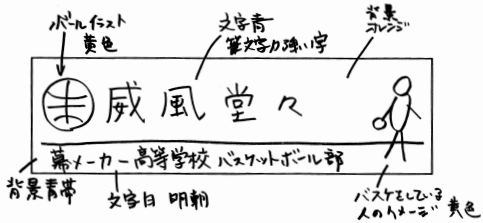 ボールイラスト
黄色
文字青
筆文字力強い字
背景
オレンジ
威風堂々
幕メーカー高等学校 バスケットボール部
背景青帯
文字白 明朝
バスケをしている
人のイメージ 黄色